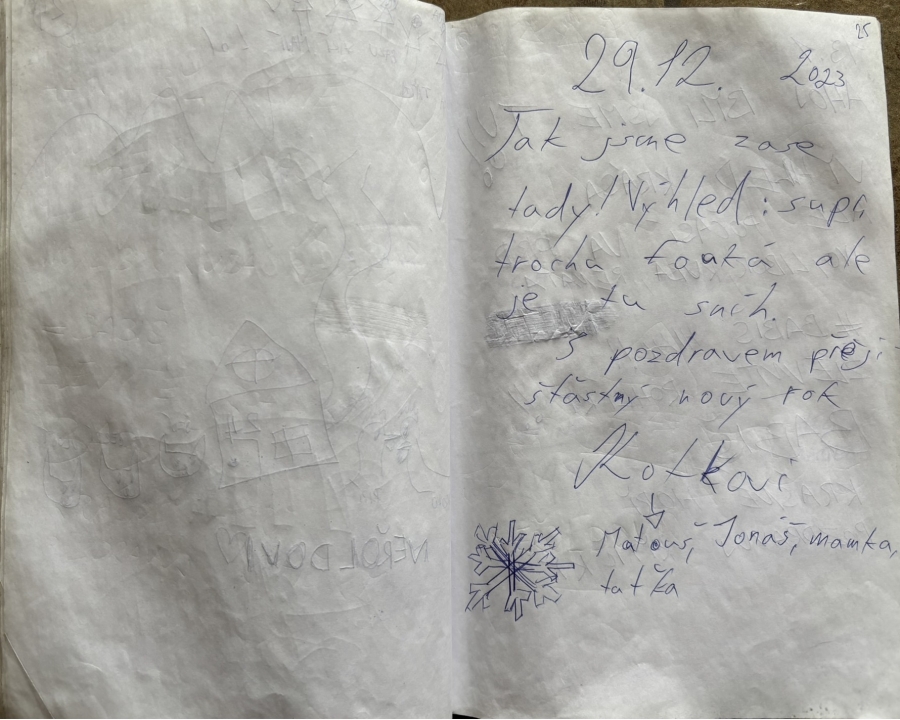 25
29.12. 2023
Tak jsme zase
tady! Výhled: supr,
trochu fouká ale
je tu sníh.
S pozdravem přejí
šťastný nový rok
Kotkovi
Matouš, Jonáš, mamka,
taťka
NEŘOLDOVI